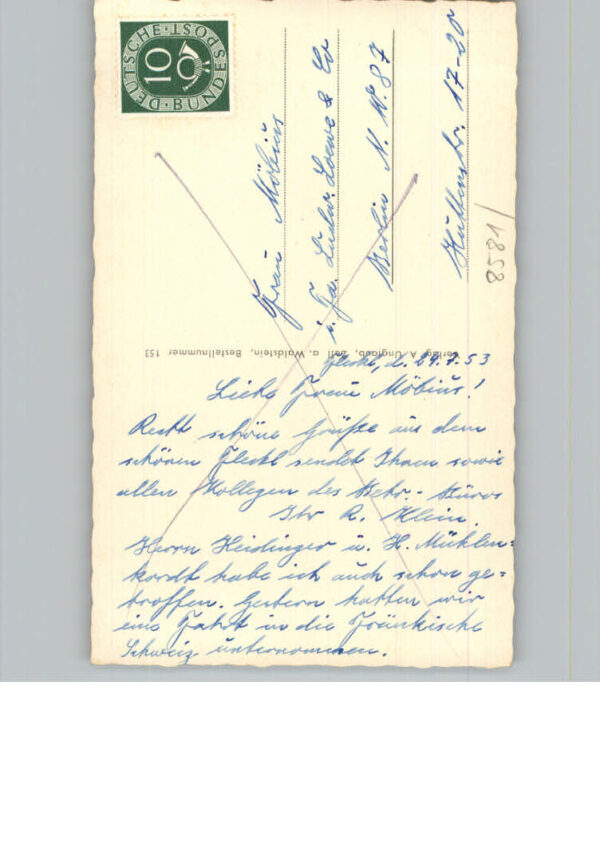 DEUTSCHE BUNDESPOST
10
Frau Möbius
i. Fa. Ludw. Loewe & Co
Berlin N. W. 87
Huttenstr. 17-20
8581/
Verlag A. Unglaub, Zell a. Waldstein, Bestellnummer 153
Fleckl, d. 29.7.53
Liebe Frau Möbius!
Recht schöne Grüße aus dem
schönen Fleckl sendet Ihnen sowie
allen Kollegen des Betr.-Büros
Ihr R. Klein.
Herrn Heidinger u. H. Mühlen-
kordt habe ich auch schon ge=
troffen. Gestern hatten wir
eine Fahrt in die Fränkische
Schweiz unternommen.